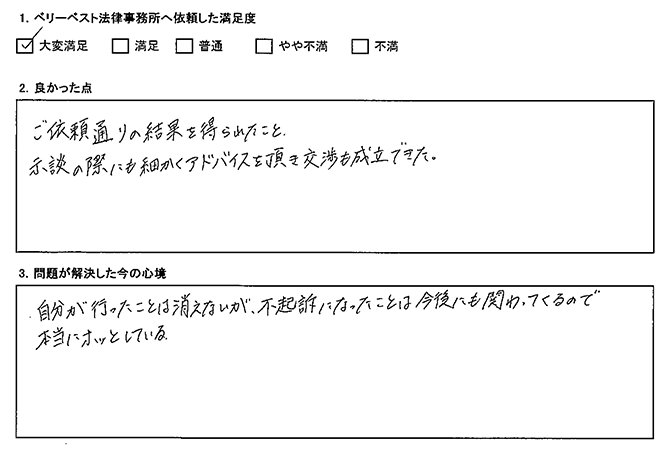 1. ベリーベスト法律事務所へ依頼した満足度
☑ 大変満足 □ 満足 □ 普通 □ やや不満 □ 不満
2. 良かった点
ご依頼通りの結果を得られたこと、
示談の際にも細かくアドバイスを頂き交渉も成立できた。
3. 問題が解決した今の心境
自分が行ったことは消えないが、不起訴になったことは今後にも関わってくるので
本当にホッとしている